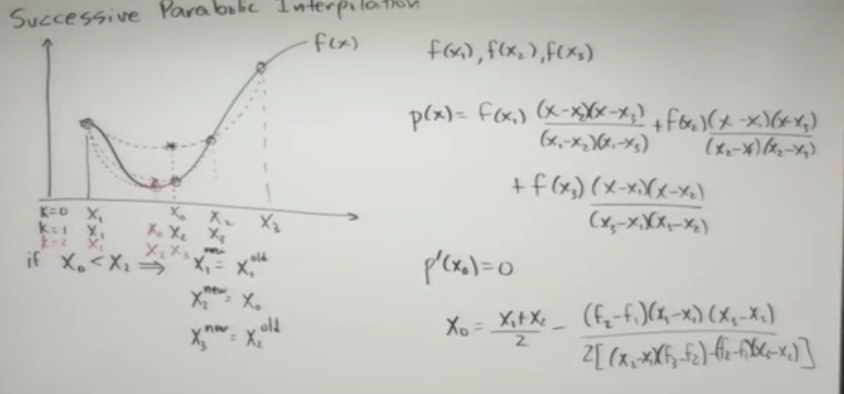 Successive Parabolic Interpolation
f(x)
k=0 x₁ x₀ x₂ x₃
k=1 x₁ x₀ x₂ x₃
k=2 x₁ x₂ x₃
if x₀ < x₂ ⟹ x₁ⁿᵉʷ = x₁ᵒˡᵈ
x₂ⁿᵉʷ = x₀
x₃ⁿᵉʷ = x₂ᵒˡᵈ
f(x₁), f(x₂), f(x₃)
p(x) = f(x₁) (x-x₂)(x-x₃) / (x₁-x₂)(x₁-x₃) + f(x₂) (x-x₁)(x-x₃) / (x₂-x₁)(x₂-x₃)
+ f(x₃) (x-x₁)(x-x₂) / (x₃-x₁)(x₃-x₂)
p'(x₀) = 0
x₀ = x₁+x₂ / 2 - (f₂-f₁)(x₃-x₁)(x₃-x₂) / 2[(x₂-x₁)(f₃-f₂)-(f₂-f₁)(x₃-x₂)]